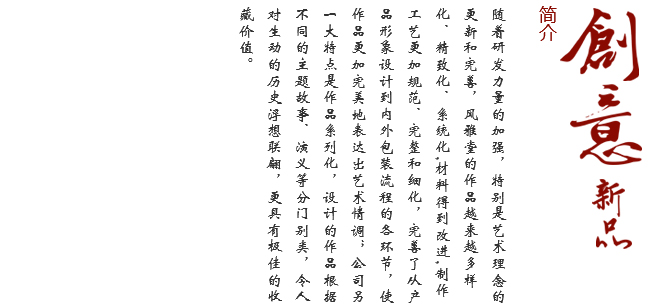 創意
新品
简介
随着研发力量的加强，特别是艺术理念的
更新和完善，风雅堂的作品越来越多样
化、精致化、系统化,材料得到改进,制作
工艺更加规范、完整和细化，完善了从产
品形象设计到内外包装流程的各环节，使
作品更加完美地表达出艺术情调；公司另
一大特点是作品系列化，设计的作品根据
不同的主题故事、演义等分门别类，令人
对生动的历史浮想联翩，更具有极佳的收
藏价值。